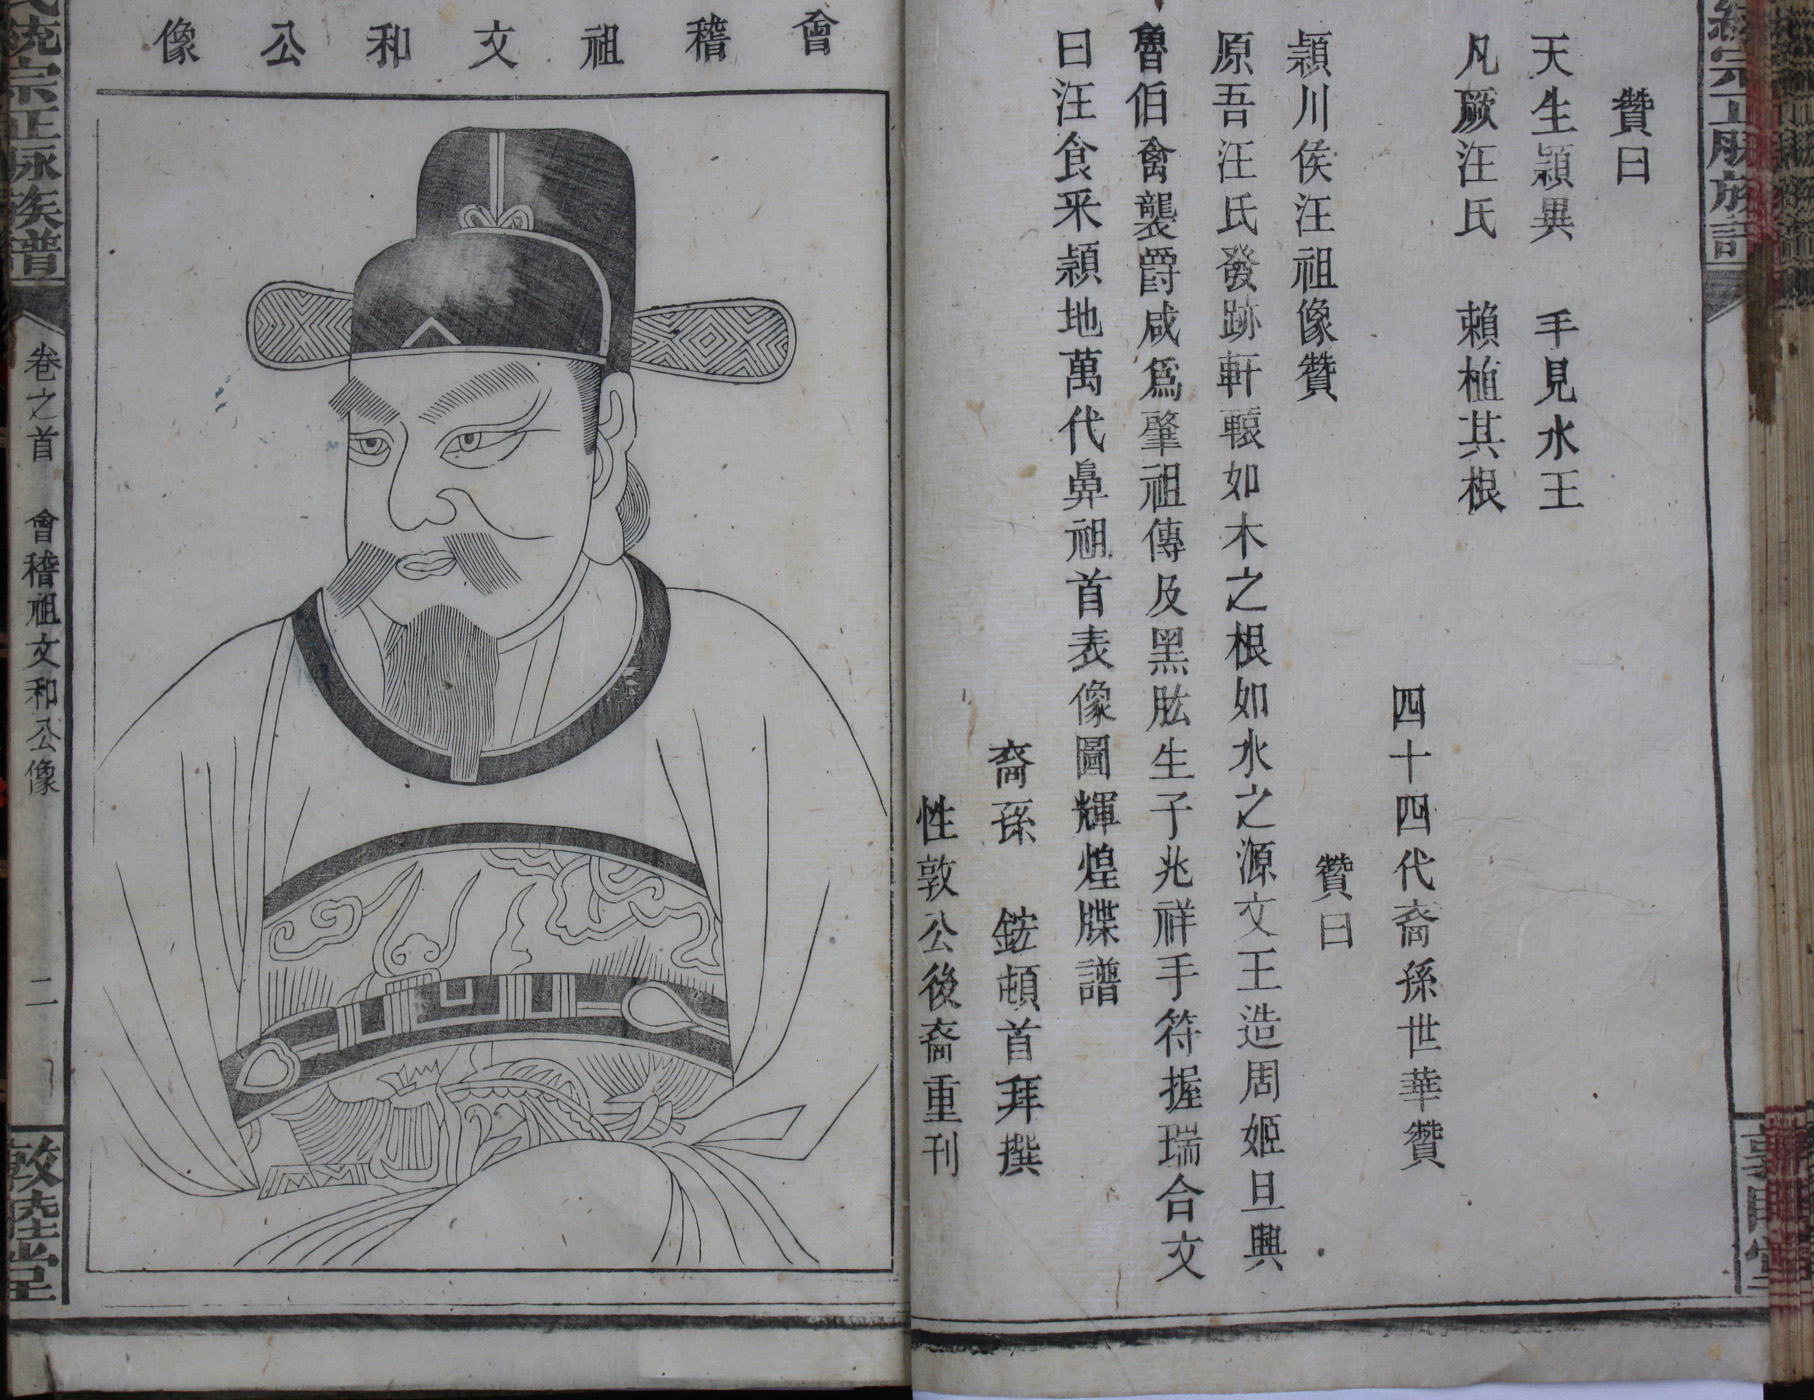 贊曰
天生頴異　手見水王
凡厥汪氏　賴植其根
四十四代裔孫世華贊
頴川侯汪祖像贊
贊曰
原吾汪氏發跡軒轅如木之根如水之源文王造周姬旦興
魯伯禽襲爵咸爲肇祖傳及黑肱生子兆祥手符握瑞合文
曰汪食采頴地萬代鼻祖首表像圖輝煌牒譜
裔孫　鋐頓首拜撰
性敦公後裔重刊
會稽祖文和公像
統宗正脉族譜
卷之首　會稽祖文和公像　二
敦睦堂